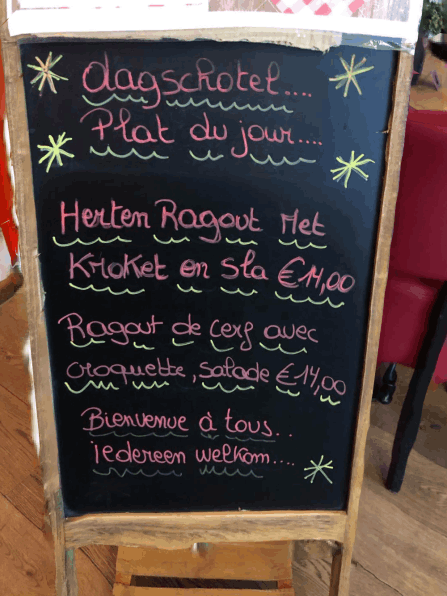 dagschotel....
Plat du jour....
Herten Ragout Met
Kroket en sla €14,00
Ragout de cerf avec
croquette, salade €14,00
Bienvenue à tous..
iedereen welkom....